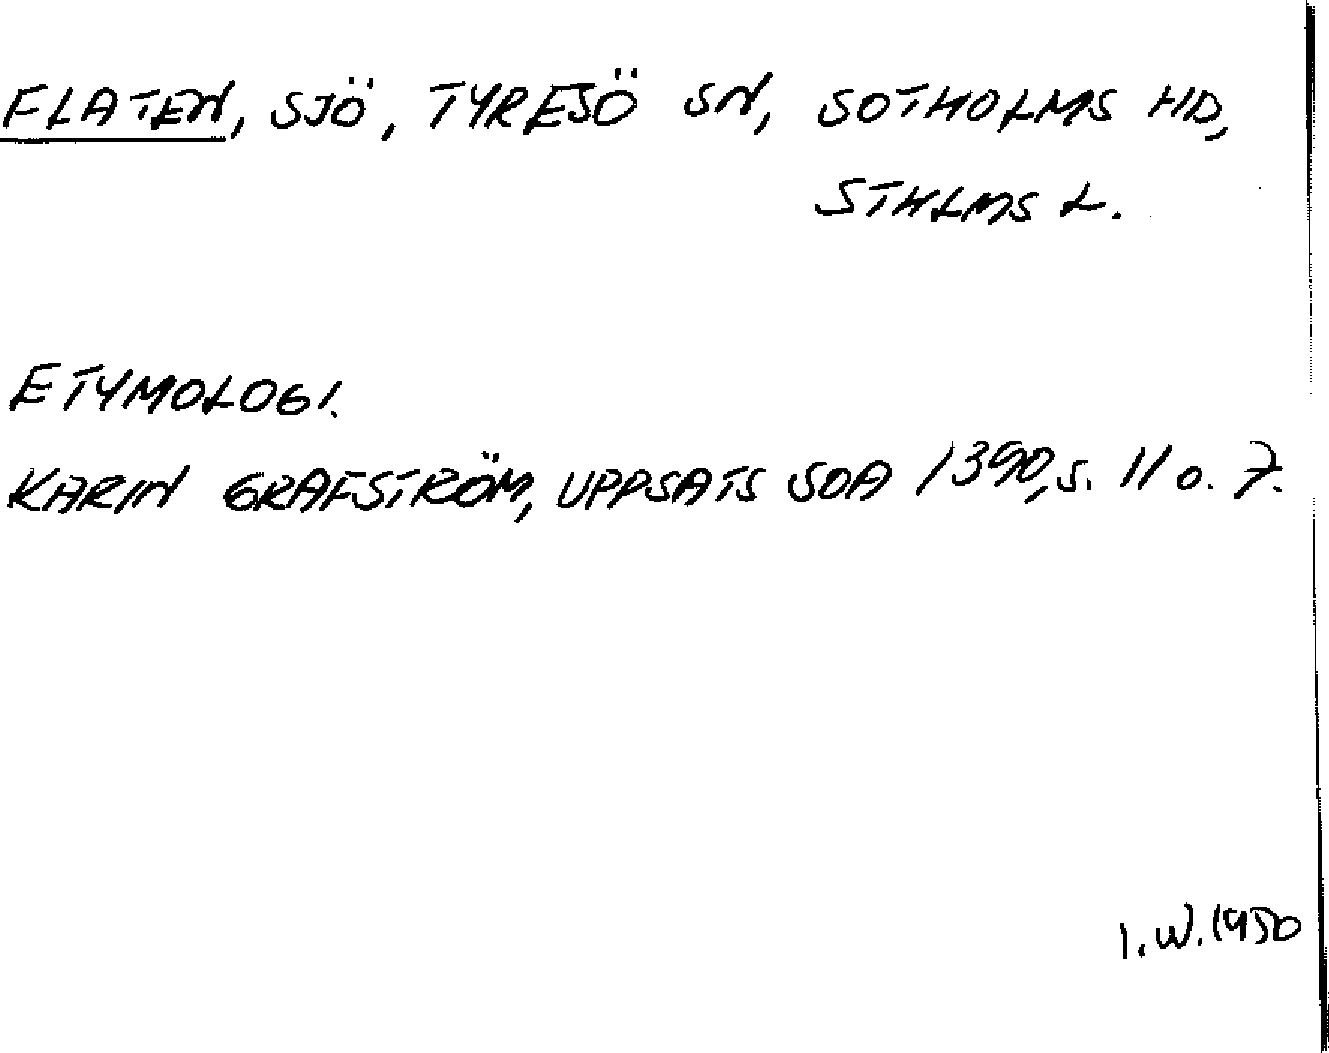 FLATEN, SJÖ, TYRESÖ SN, SOTHOLMS HD,
STHLMS L.
ETYMOLOGI.
KARIN GRAFSTRÖM, UPPSATS SOA 1390, s. 11 o. 7.
I.W. 1950